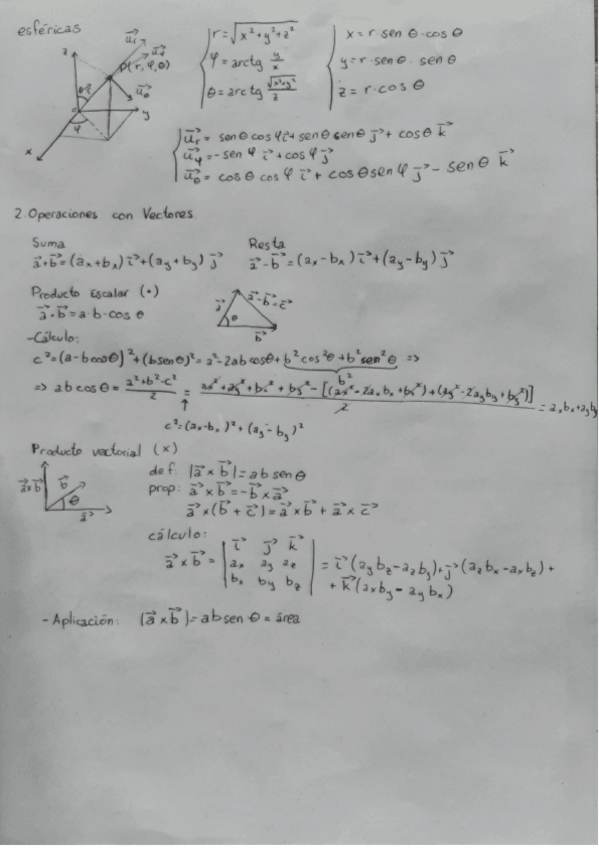 esféricas
z u⃗r u⃗φ
P(r, φ, θ)
θ r⃗
u⃗θ
o y
φ
x
r = √(x²+y²+z²)
φ = arctg y/x
θ = arctg √(x²+y²)/z
x = r · sen θ · cos θ
y = r · sen θ · sen θ
z = r · cos θ
u⃗r = senθ cos φ i⃗ + senθ senθ j⃗ + cosθ k⃗
u⃗φ = -sen φ i⃗ + cos φ j⃗
u⃗θ = cos θ cos φ i⃗ + cos θ sen φ j⃗ - sen θ k⃗
2. Operaciones con Vectores.
Suma Resta
a⃗+b⃗ = (ax+bx) i⃗ + (ay+by) j⃗ a⃗-b⃗ = (ax-bx) i⃗ + (ay-by) j⃗
Producto Escalar (·)
a⃗·b⃗ = a·b·cos θ
a⃗ a⃗-b⃗=c⃗
θ
b⃗
-Cálculo:
c² = (a-b cosθ)² + (b senθ)² = a² - 2ab cosθ + b² cos²θ + b² sen²θ ⇒
b²
⇒ ab cos θ = (a²+b²-c²)/2 = (ax²+ay²+bx²+by² - [(ax²-2axbx+bx²)+(ay²-2ayby+by²)])/2 = axbx+ayby
↑
c² = (ax-bx)² + (ay-by)²
Producto vectorial (×)
a⃗×b⃗ b⃗
θ
a⃗
def: |a⃗×b⃗| = ab senθ
prop: a⃗×b⃗ = -b⃗×a⃗
a⃗×(b⃗+c⃗) = a⃗×b⃗ + a⃗×c⃗
cálculo:
a⃗×b⃗ = | i⃗ j⃗ k⃗ |
| ax ay az | = i⃗(aybz-azby)+j⃗(azbx-axbz)+
| bx by bz | + k⃗(axby-aybx)
- Aplicación: |a⃗×b⃗| = ab sen θ = área